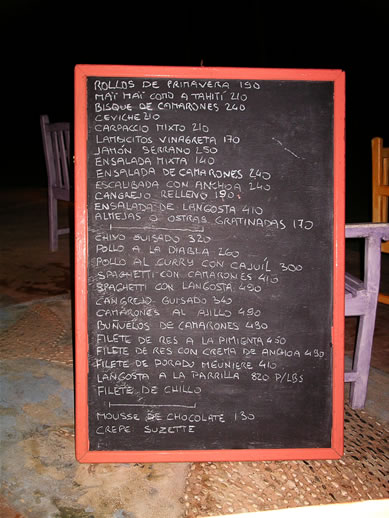 ROLLOS DE PRIMAVERA 190
MAÏ MAÏ COMO A TAHITI 210
BISQUE DE CAMARONES 240
CEVICHE 210
CARPACCIO MIXTO 210
LAMBICITOS VINAGRETA 170
JAMÓN SERRANO 250
ENSALADA MIXTA 140
ENSALADA DE CAMARONES 240
ESCALIBADA CON ANCHOA 240
CANGREJO RELLENO 190
ENSALADA DE LANGOSTA 410
ALMEJAS O OSTRAS GRATINADAS 170
CHIVO GUISADO 320
POLLO A LA DIABLA 260
POLLO AL CURRY CON CAJUÍL 300
SPAGHETTI CON CAMARONES 410
SPAGHETTI CON LANGOSTA 490
CANGREJO GUISADO 340
CAMARONES AL AJILLO 490
BUÑUELOS DE CAMARONES 490
FILETE DE RES A LA PIMIENTA 450
FILETE DE RES CON CREMA DE ANCHOA 490
FILETE DE DORADO MEUNIERE 410
LANGOSTA A LA PARRILLA 820 P/LBS
FILETE DE CHILLO
MOUSSE DE CHOCOLATE 130
CREPE SUZETTE